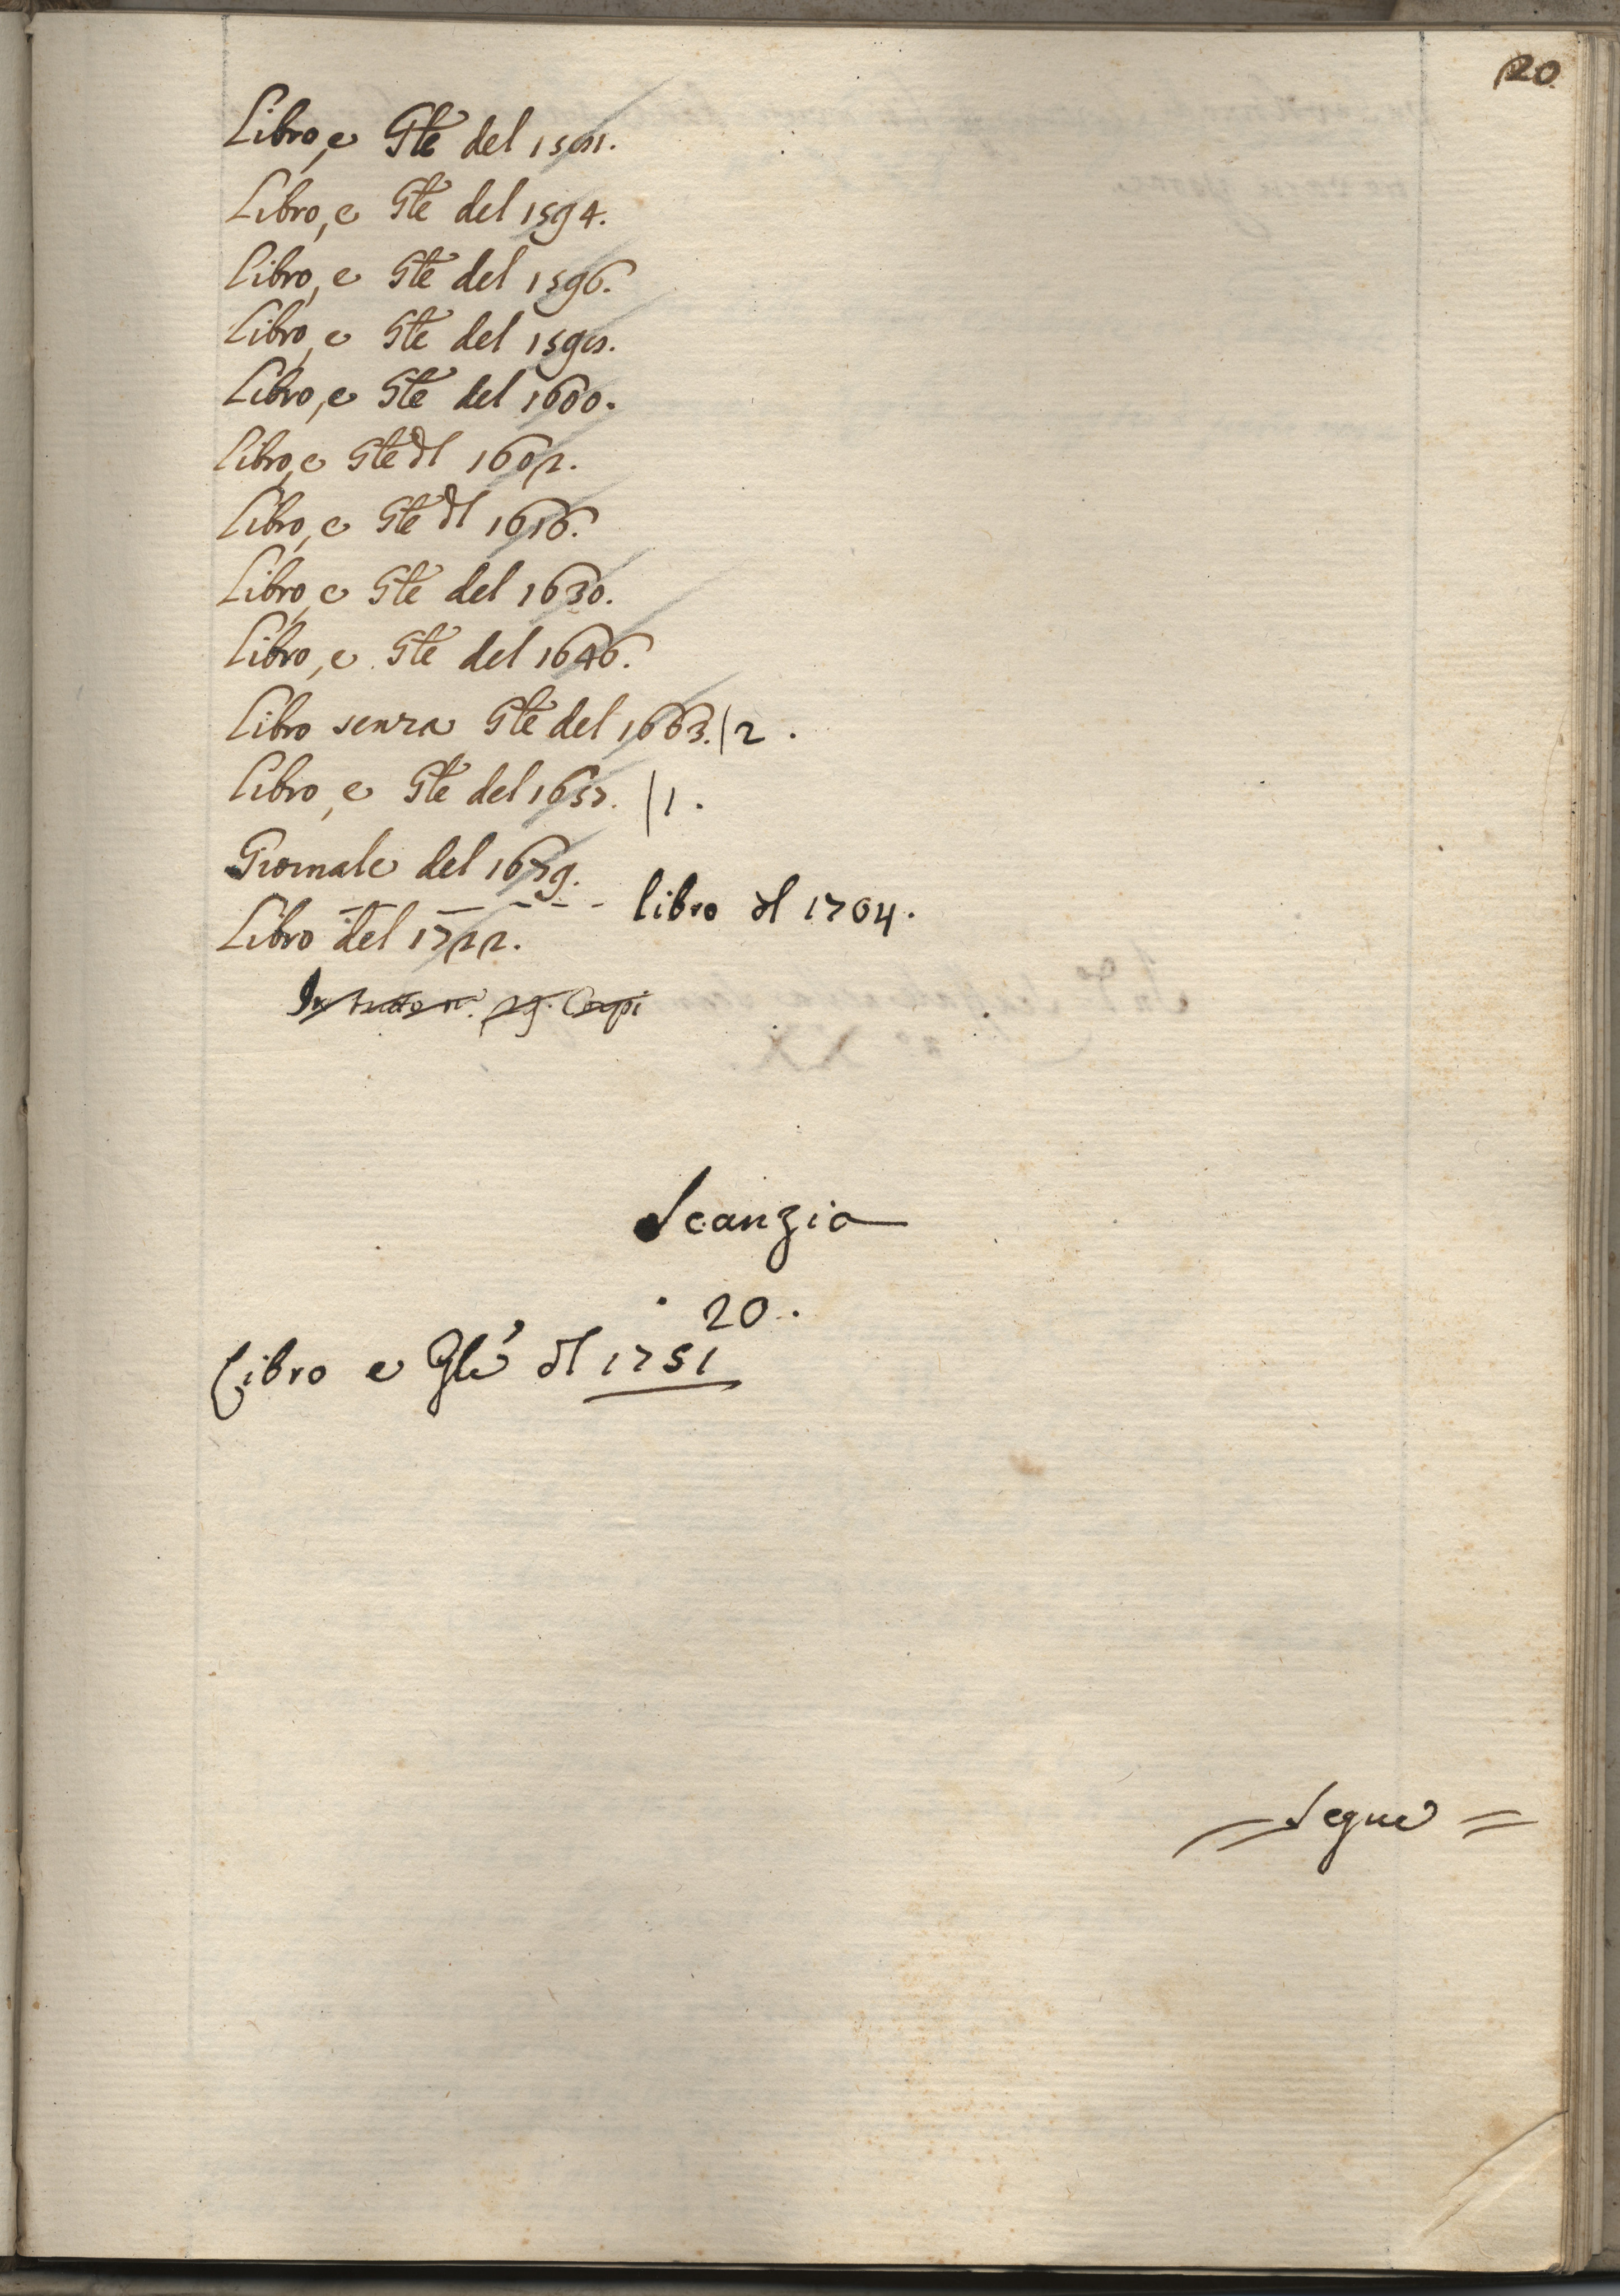 20.
Libro, e Gle del
Libro, e Gle del 1594.
Libro, e Gle del 1596.
Libro, e Gle del
Libro, e Gle del 1600.
Libro, e Gle dl 1602.
Libro, e Gle dl 1616.
Libro, e Gle del 1630.
Libro, e Gle del 1646.
Libro senza Gle del 1663. | 2.
Libro, e Gle del 1657. | 1.
Giornale del 1679.
libro dl 1704.
Libro del 1722.
In tutto n. 29. Corpi
Scanzia
20.
Libro e Gle dl 1751
= Segue =